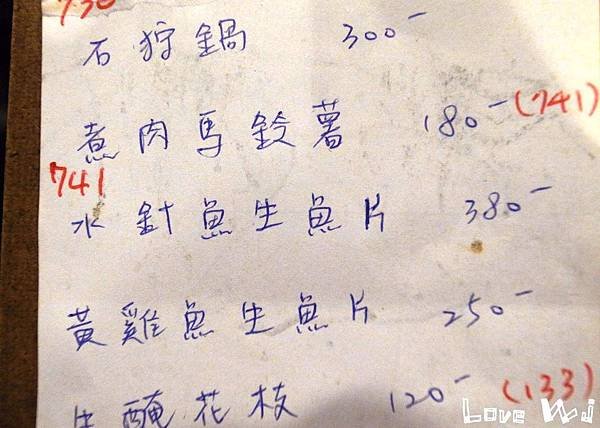 730
石狩鍋 300-
煮肉馬鈴薯 180- (741)
741
水針魚生魚片 380-
黃雞魚生魚片 250-
生醃花枝 120- (133)
Love Wi